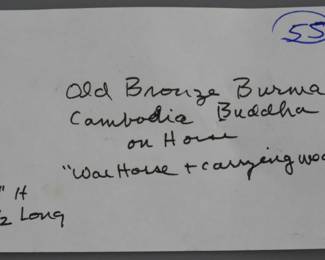 55
Old Bronze Burma
Cambodia Buddha
on Horse
"War Horse + carrying
" H
/2 Long